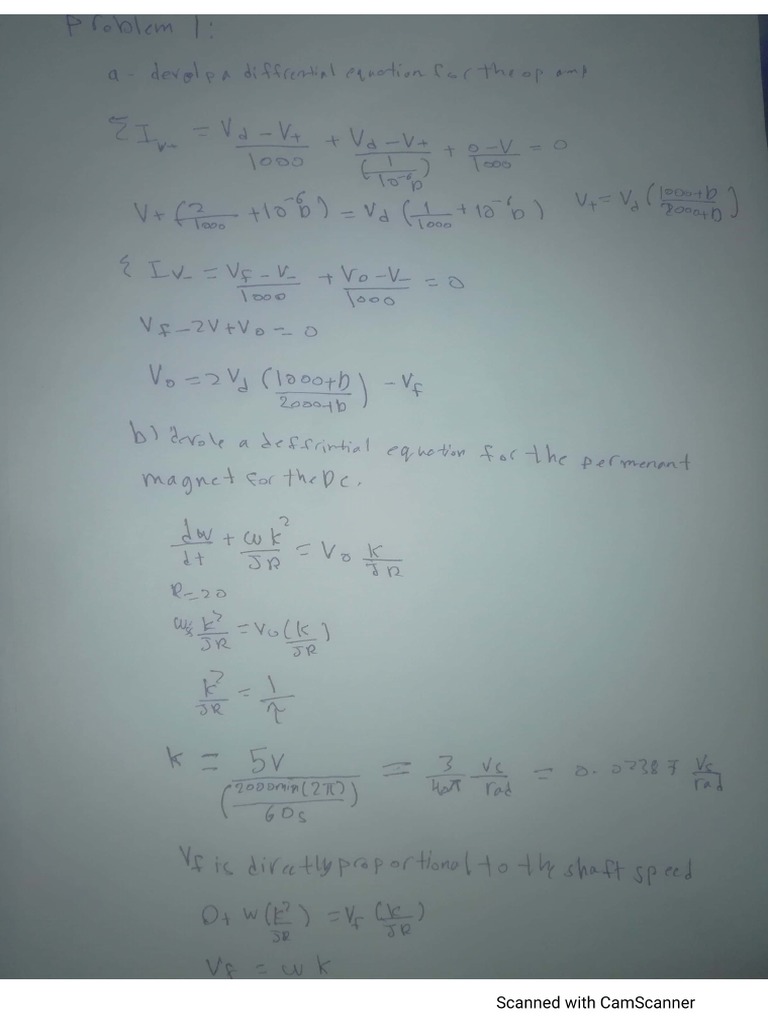 Problem 1:
a - develpa diffrential equation for the op amp
Σ I_{v+} = \frac{Vd - V+}{1000} + \frac{Vd - V+}{(\frac{1}{10^{-6}D})} + \frac{0 - V}{1000} = 0
V+ (\frac{2}{1000} + 10^{-6}D) = Vd (\frac{1}{1000} + 10^{-6}D) V+ = Vd (\frac{1000+D}{2000+D})
Σ I_{V-} = \frac{Vf - V-}{1000} + \frac{Vo - V-}{1000} = 0
Vf - 2V + Vo = 0
Vo = 2Vd (\frac{1000+D}{2000+D}) - Vf
b) a deffrintial equation for the permenant
magnet for the Dc.
\frac{dw}{dt} + \frac{ωk^2}{JR} = Vo \frac{k}{JR}
R = 20
\frac{k^2}{JR} = Vo (\frac{k}{JR})
\frac{k^2}{JR} = \frac{1}{τ}
k = \frac{5V}{(\frac{2000min(2π)}{60s})} = \frac{3}{40π} \frac{Vs}{rad} = 0.02387 \frac{Vs}{rad}
Vf is directly proportional to the shaft speed
0 + w (\frac{k^2}{JR}) = Vf (\frac{k}{JR})
Vf = ωk
Scanned with CamScanner